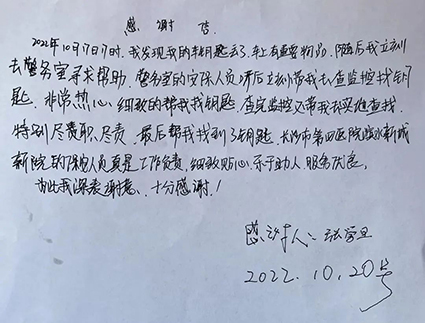 感谢信
2022年10月17日7时，我发现我的车钥匙丢了，车上有重要物品，随后我立刻
去警务室寻求帮助，警务室的安保人员听后立刻带我去查监控找钥
匙，非常热心，细致的帮我找钥匙，查完监控又带我去其他查找，
特别尽责职、尽责，最后帮我找到了钥匙，长沙市第四医院滨水新城
新院的保安人员真是工作负责，细致贴心，乐于助人，服务优良，
为此我深表谢意，十分感谢！
感谢人：张
2022.10.20号